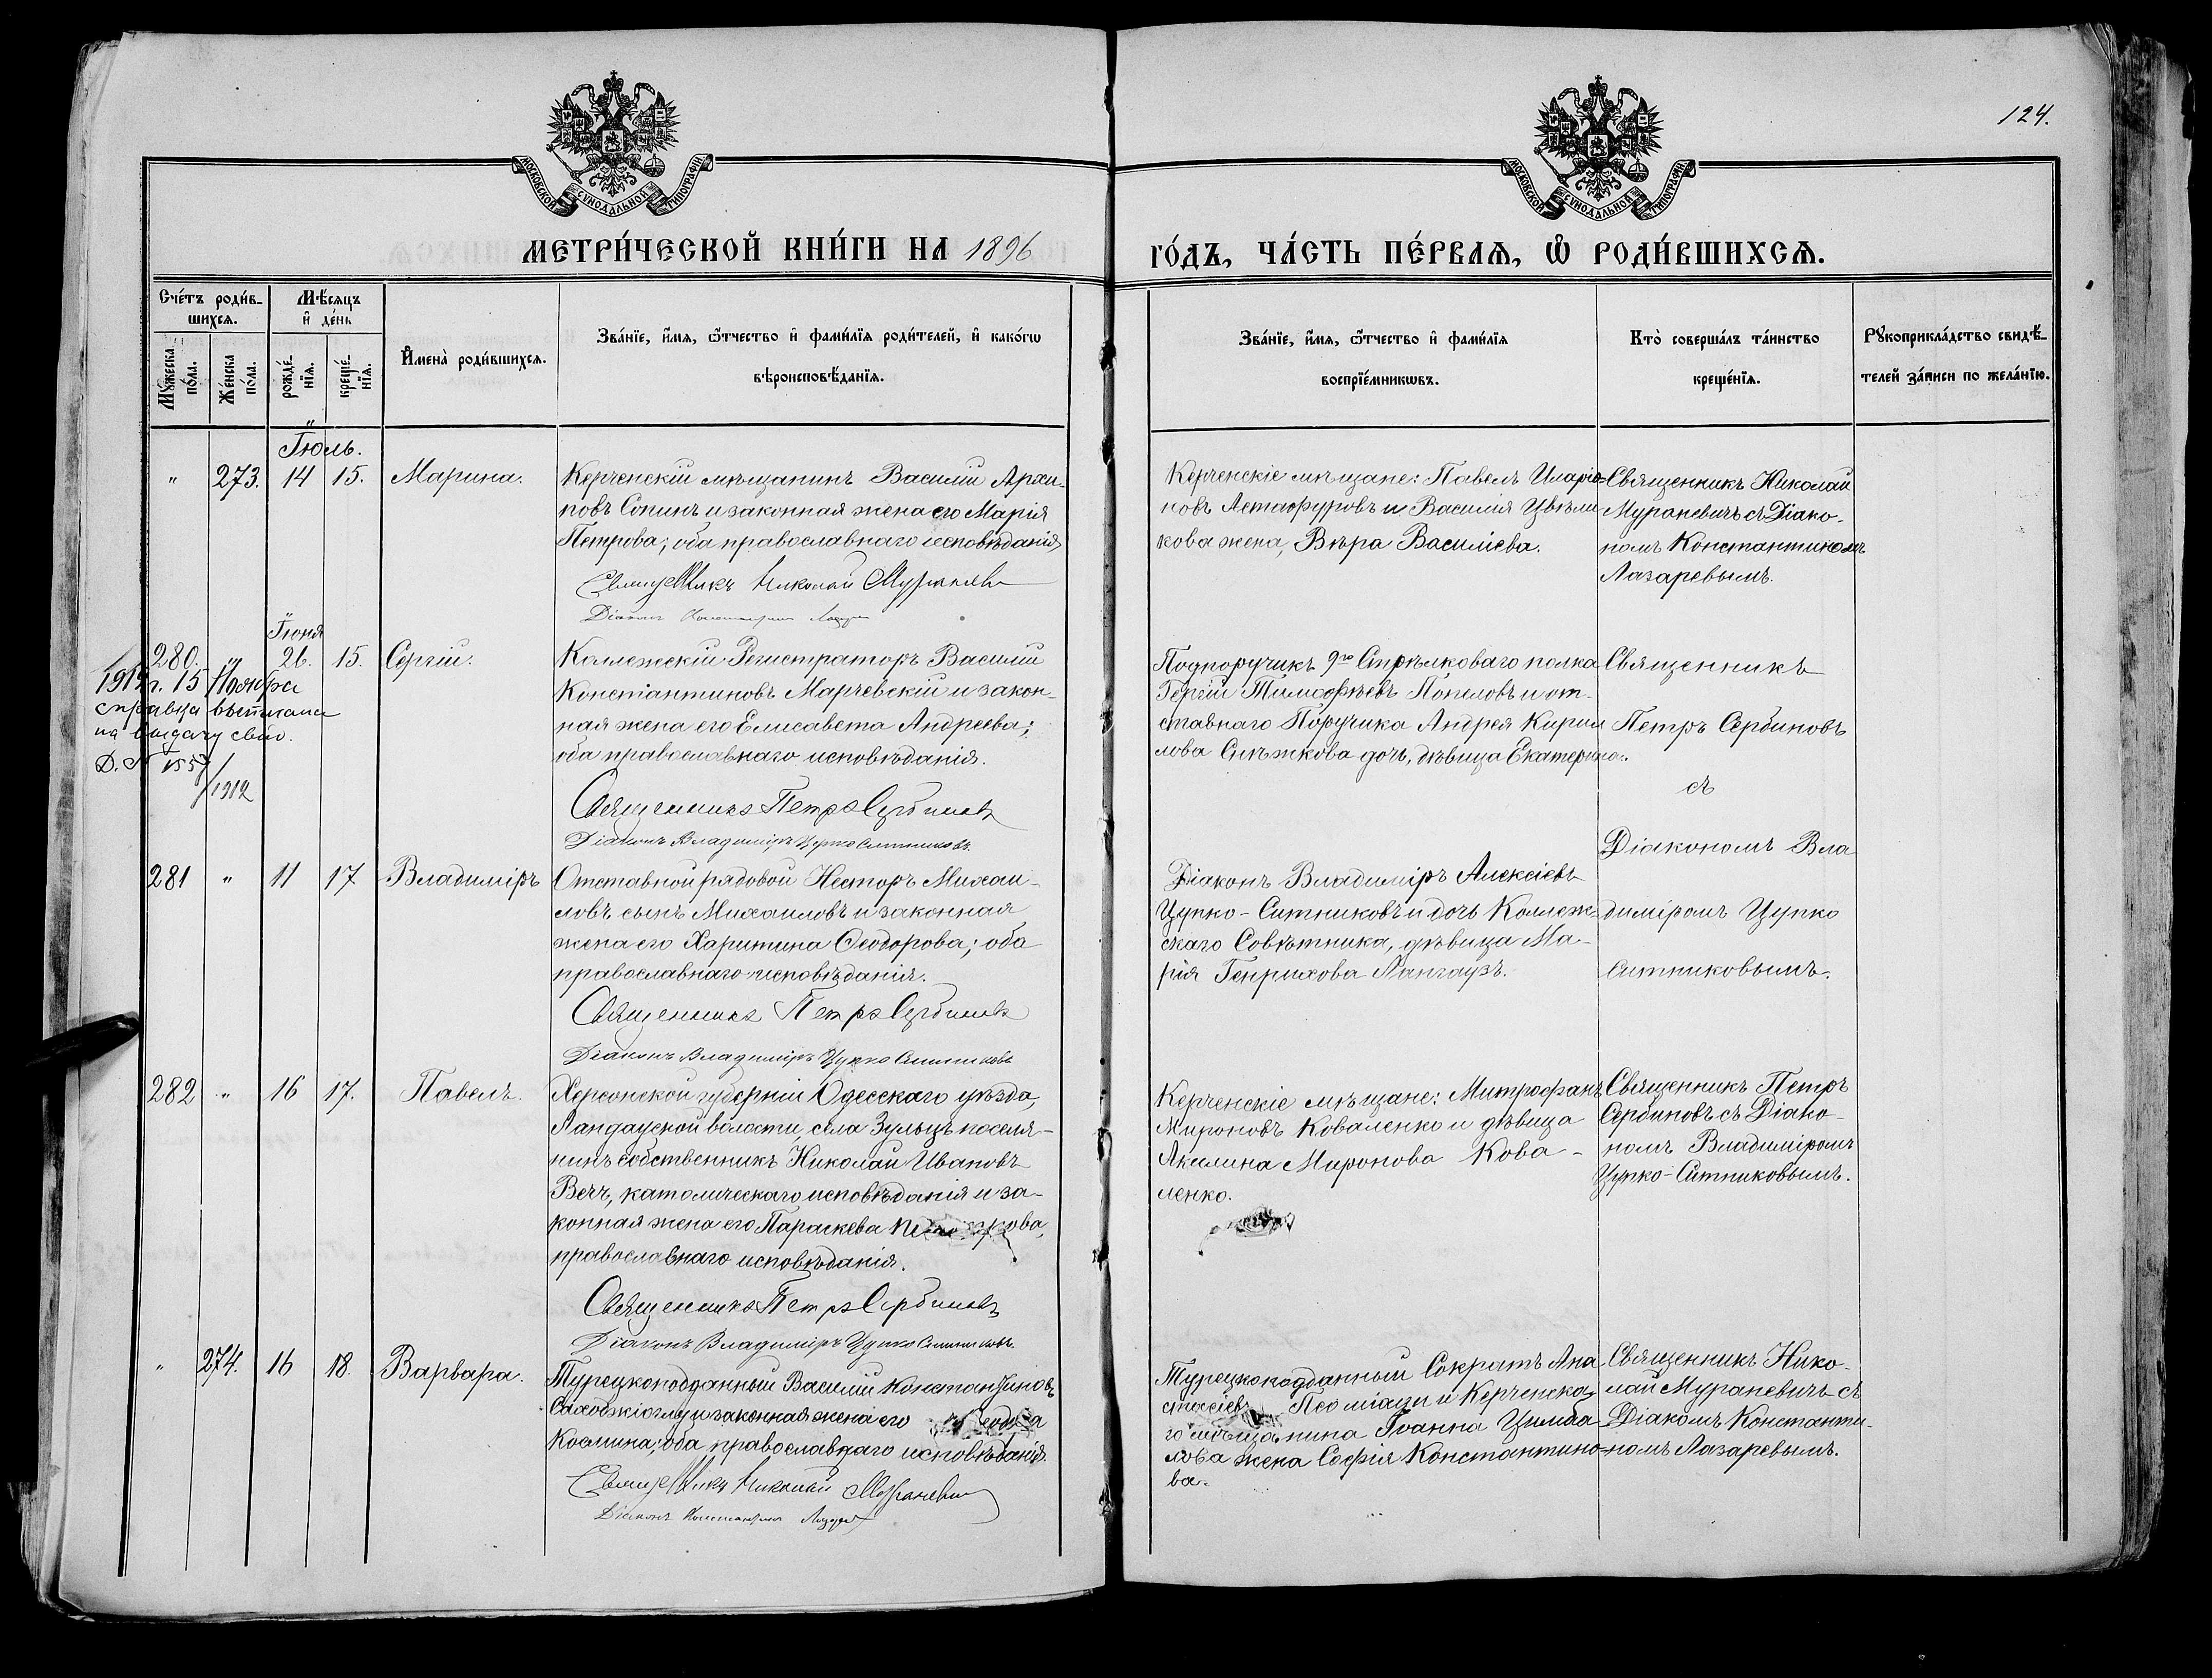 124.
МОСКОВСКОЙ СѴНОДАЛЬНОЙ ТИПОГРАФІИ
МОСКОВСКОЙ СѴНОДАЛЬНОЙ ТИПОГРАФІИ
МЕТРИ́ЧЕСКОЙ КНИ́ГИ НА 1896
ГО́ДЪ, ЧА́СТЬ ПЕ́РВАѦ, Ѽ РОДИ́ВШИХСѦ.
Сче́тъ роди́в-
шихсѧ.
Мѣ́сѧцъ
и҆ де́нь
Мꙋ́жеска
по́ла.
Же́нска
по́ла.
рожде́-
нїѧ.
креще́-
нїѧ.
И҆мена̀ роди́вшихсѧ.
Зва́нїе, и҆́мѧ, ѻ҆́тчество и҆ фами́лїѧ роди́телей, и҆ како́гѡ
вѣроисповѣ́данїѧ.
Зва́нїе, и҆́мѧ, ѻ҆́тчество и҆ фами́лїѧ
воспрїе́мникѡвъ.
Кто̀ соверша́лъ та́инство
креще́нїѧ.
Рꙋкоприкла́дство свидѣ́-
телей за́писи по жела́нїю.
Іюль.
" 273. 14 15. Марина.
Керченскій мѣщанинъ Василій Архи-
повъ Сопинъ и законная жена его Марія
Петрова; оба православнаго исповѣданія
Священникъ Николай Мураневич
Діаконъ Константинъ Лазарев
Керченскіе мѣщане: Павелъ Иларіо-
новъ Астафуровъ и Василія
кова жена, Вѣра Василіева.
Священникъ Николай
Мураневичъ съ Діако-
номъ Константиномъ
Лазаревымъ.
Іюня
280. " 26. 15. Сергій.
15 Ноября
справка выписана
на выдачу свид.
Д. №
/1912
Коллежскій Регистраторъ Василій
Констіантиновъ Марчевскій и закон-
ная жена его Елисавета Андреева;
оба православнаго исповѣданія.
Священникъ Петръ Сербиновъ
Діаконъ Владиміръ Цупко Ситниковъ.
Подпоручикъ 9го Стрѣлковаго полка
Тимофѣевъ Попеловъ и от-
ставнаго Поручика Андрея Кирил
лова Снѣжкова дочь, дѣвица Екатерина.
Священникъ
Петръ Сербиновъ
съ
Діакономъ Вла
диміромъ Цупко
Ситниковымъ.
281 " 11 17 Владиміръ
Отставной рядовой Несторъ Михаи-
ловъ сынъ Михаиловъ и законная
жена его Харитина Ѳеодорова; оба
православнаго исповѣданія.
Священникъ Петръ Сербиновъ
Діаконъ Владиміръ Цупко Ситниковъ
Діаконъ Владиміръ Алексіевъ
Цупко-Ситниковъ и дочь Коллеж-
скаго Совѣтника, дѣвица Ма-
рія Генрихова Лангаузъ.
282 " 16 17. Павелъ.
Херсонской губерніи Одесскаго уѣзда,
Ландауской волости, села Зульцъ поселя-
нинъ собственникъ Николай Ивановъ
Вечъ, католическаго исповѣданія и за-
конная жена его Параскева
православнаго исповѣданія.
Священникъ Петръ Сербиновъ
Діаконъ Владиміръ Цупко Ситниковъ.
Керченскіе мѣщане: Митрофанъ
Мироновъ Коваленко и дѣвица
Акилина Миронова Кова-
ленко.
Священникъ Петръ
Сербиновъ съ Діако-
номъ Владиміромъ
Цупко-Ситниковымъ.
" 274. 16 18. Варвара.
Турецкоподданный Василій Константиновъ
и законная жена его
Космина; оба православнаго исповѣданія.
Священникъ Николай Мураневич
Діаконъ Константинъ Лазарев
Турецкоподданный Сократъ Ана
стасіевъ и Керченска
го мѣщанина Іоанна Цимба
лова жена Софія Константино-
ва.
Священникъ Нико-
лай Мураневичъ съ
Діаком Константи-
номъ Лазаревымъ.